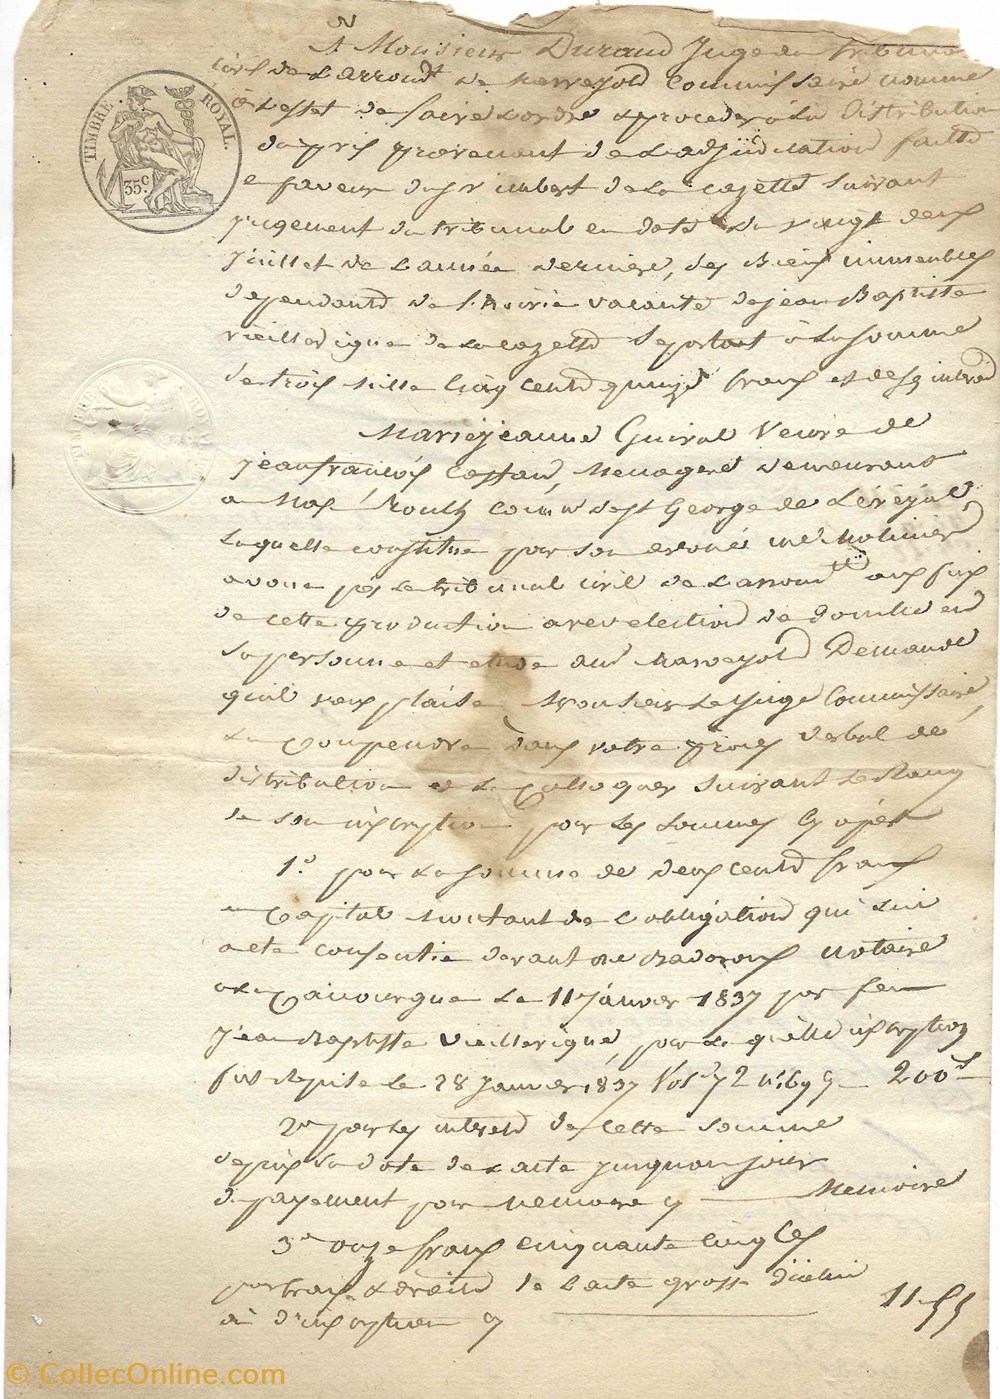 A Monsieur Durand Juge du tribunal
civil de l'arrondt de Marvejols Commissaire nommé
à l'effet de faire l'ordre & proceder à la Distribution
du prix provenant de l'adjudication faitte
en faveur du sr imbert de la cazette suivant
jugement du tribunal en date du vingt deux
juillet de l'année derniere, des Biens immeubles
dependants de l'hoirie vacante de jean Baptiste
vieilledigue de la cazette se portant à la somme
de trois mille cinq cents quinze francs et des interets
TIMBRE ROYAL.
35 c.
Marie jeanne Guiral Veuve de
jean françois Menagere demeurant
a Mas Rouch comne de st George de Levejac,
laquelle constitue pour son avoué me Molinier
avoué près le tribunal civil de l'arrondt aux fins
de cette production avec election de domicile en
sa personne et etude aud Marvejols Demande
qu'il vous plaise Monsieur le juge Commissaire,
la Comprendre dans votre procès verbal de
distribution et la Colloquer suivant le Rang
de son inscription pour les sommes cy après
1° pour la somme de deux cents francs
en Capital montant de l'obligation qui lui
a eté consentie devant me notaire
a la Canourgue le 11 janvier 1837 par feu
jean Baptiste vieilledigue, pour laquelle inscription
fut requise le 28 janvier 1837 Vol. 72 n° 699 — 200 f
2° pour les interets de cette somme
depuis la date de l'acte jusqu'au jour
du payement pour memoire cy — Memoire
3° onze francs cinquante cinq ces
pour frais & droits de l'acte grosse d'icelui
et d'inscription cy — 11-55
© CollecOnline.com